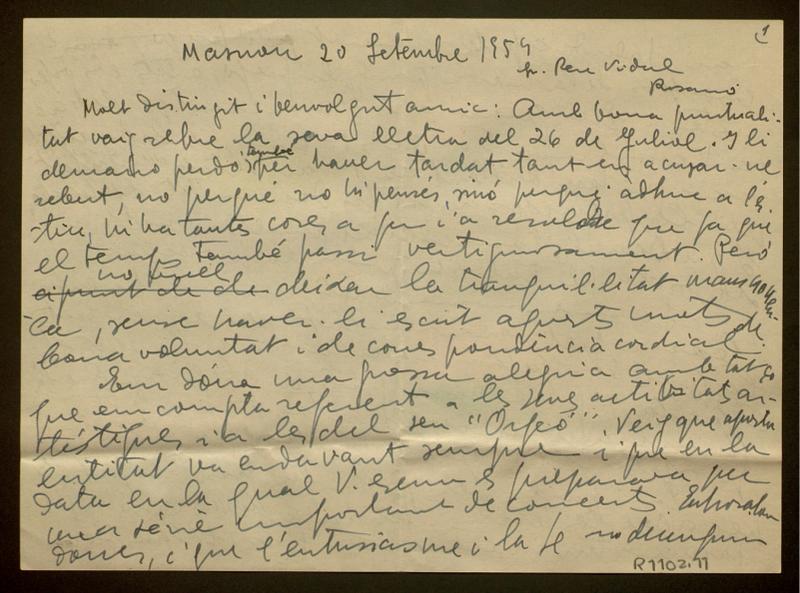 1
Masnou 20 Setembre 1959
Sr. Pere Vidal
Rosarió
Molt distingit i benvolgut amic: Amb bona puntuali-
tat vaig rebre la seva lletra del 26 de Juliol. I li
demano perdó també per haver tardat tant en acusar-ne
rebut, no perquè no hi pensés, sinó perquè adhuc a l'es-
tiu, hi ha tantes coses a fer i a resoldre que fa que
el temps també passi vertiginosament. Però
no vull
a punt de de deixar la tranquil·litat masnoven-
ca, sense haver-li escrit aquests mots de
bona voluntat i de correspondència cordial.
Em dóna una gran alegria amb tot ço
que em compta referent a les seves activitats ar-
tístiques i a les del seu "Orfeó". Veig que aquesta
entitat va endavant sempre i que en la
data en la qual V. escriu es preparava per
una sèrie important de concerts. Enhorabona
doncs, i que l'entusiasme i la fe no decaiguin
R1102.11